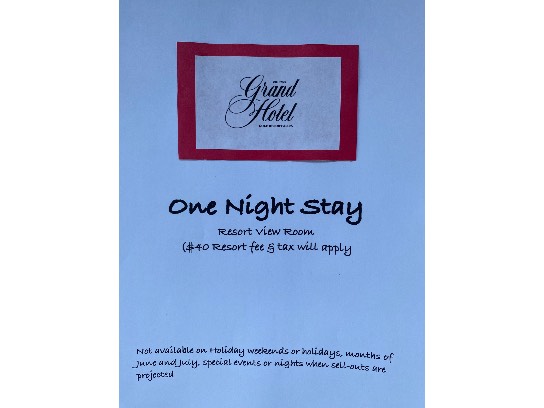 Grand
Hotel
One Night Stay
Resort View Room
($40 Resort fee & tax will apply
Not available on Holiday weekends or holidays, months of
June and July, special events or nights when sell-outs are
projected